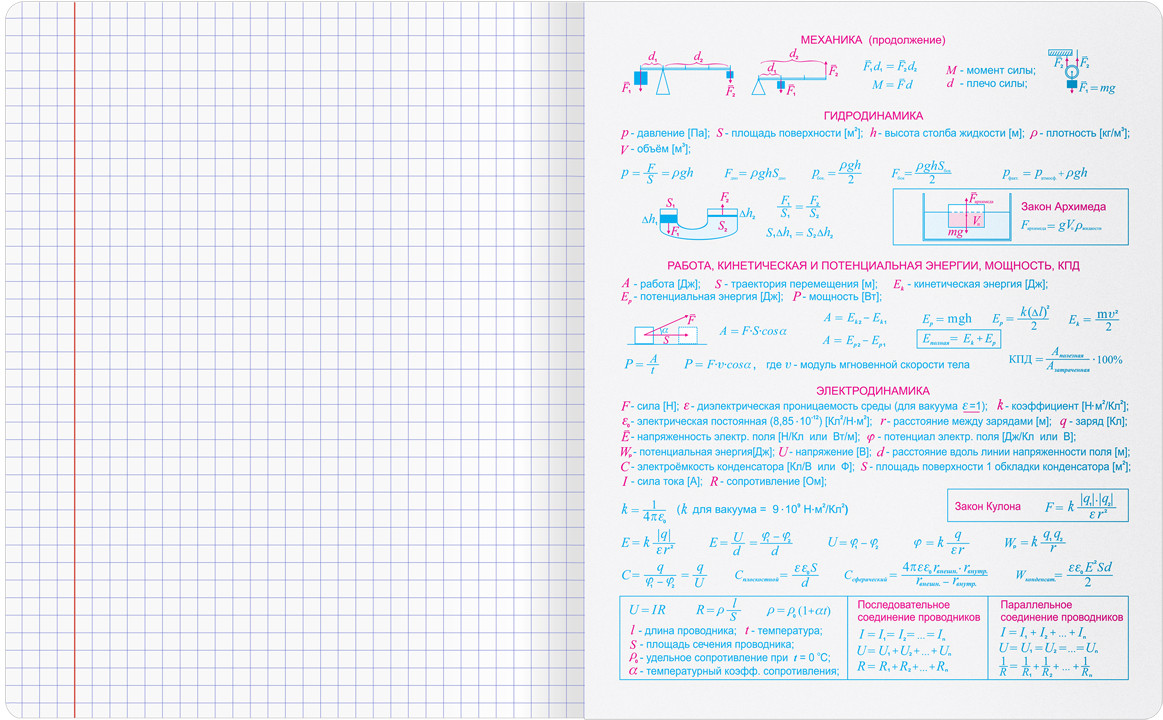 МЕХАНИКА (продолжение)
d₁ d₂ F̄₁ F̄₂
d₂ d₁ F̄₂ F̄₁
F̄₁d₁ = F̄₂d₂
M = F̄d
M - момент силы;
d - плечо силы;
F̄₂ F̄₂
F̄₁=mg
ГИДРОДИНАМИКА
p - давление [Па]; S - площадь поверхности [м²]; h - высота столба жидкости [м]; ρ - плотность [кг/м³];
V - объём [м³];
p = F/S = ρgh F = ρghS p = ρgh/2 F = ρghS/2 p = p + ρgh
S₁ F₂ Δh₁ Δh₂ F₁ S₂
F₁/S₁ = F₂/S₂
S₁Δh₁ = S₂Δh₂
F̄архимеда V mg
Закон Архимеда
Fархимеда = gVρжидкости
РАБОТА, КИНЕТИЧЕСКАЯ И ПОТЕНЦИАЛЬНАЯ ЭНЕРГИИ, МОЩНОСТЬ, КПД
A - работа [Дж]; S - траектория перемещения [м]; Eₖ - кинетическая энергия [Дж];
Eₚ - потенциальная энергия [Дж]; P - мощность [Вт];
F̄ α S
A = F·S·cosα
A = Eₖ₂ − Eₖ₁
A = Eₚ₂ − Eₚ₁
Eₚ = mgh Eₚ = k(Δl)²/2 Eₖ = mυ²/2
Eполная = Eₖ + Eₚ
P = A/t P = F·υ·cosα, где υ - модуль мгновенной скорости тела
КПД = Aполезная/Aзатраченная · 100%
ЭЛЕКТРОДИНАМИКА
F - сила [Н]; ε - диэлектрическая проницаемость среды (для вакуума ε =1); k - коэффициент [Н·м²/Кл²];
ε₀ - электрическая постоянная (8,85·10⁻¹²) [Кл²/Н·м²]; r - расстояние между зарядами [м]; q - заряд [Кл];
Ē - напряженность электр. поля [Н/Кл или Вт/м]; φ - потенциал электр. поля [Дж/Кл или В];
Wₚ - потенциальная энергия[Дж]; U - напряжение [В]; d - расстояние вдоль линии напряженности поля [м];
C - электроёмкость конденсатора [Кл/В или Ф]; S - площадь поверхности 1 обкладки конденсатора [м²];
I - сила тока [А]; R - сопротивление [Ом];
k = 1/4πε₀ (k для вакуума = 9·10⁹ Н·м²/Кл²)
Закон Кулона F = k |q₁|·|q₂|/εr²
E = k |q|/εr² E = U/d = φ₁−φ₂/d U = φ₁−φ₂ φ = k q/εr Wₚ = k q₁q₂/r
C = q/φ₁−φ₂ = q/U Cплоскостной = εε₀S/d Cсферический = 4πεε₀rвнешн.·rвнутр./rвнешн.−rвнутр. Wконденсат. = εε₀E²Sd/2
U = IR R = ρ l/S ρ = ρ₀(1+αt)
l - длина проводника; t - температура;
S - площадь сечения проводника;
ρ₀ - удельное сопротивление при t = 0 °С;
α - температурный коэфф. сопротивления;
Последовательное
соединение проводников
I = I₁= I₂= ...= Iₙ
U = U₁+U₂+...+Uₙ
R = R₁+R₂+...+Rₙ
Параллельное
соединение проводников
I = I₁+ I₂+ ...+ Iₙ
U = U₁=U₂=...=Uₙ
1/R = 1/R₁ + 1/R₂ +...+ 1/Rₙ